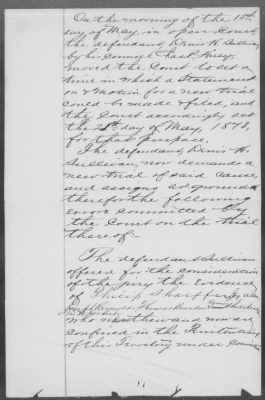 On the morning of the 15th
day of May, in open Court,
the defendant, Denis H. Sullivan
by his counsel
moved the Court to set a
time in which a statement
on & Motion for a new trial
could be made & filed, and
the Court accordingly set
the day of May, 1878,
for that purpose.
The defendant, Denis H.
Sullivan, now demands a
new trial of said cause,
and assigns as grounds
therefor the following
errors committed by
the Court on the trial
thereof:-
The defendant Sullivan
offered for the consideration
of the jury the evidence
of Philip
who and now are
confined in the Penitentiary
of this Territory under